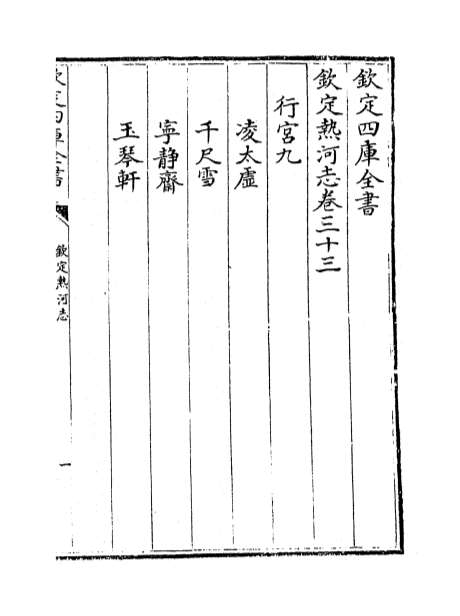 欽定四庫全書
欽定熱河志卷三十三
行宮九
凌太虛
千尺雪
寧静齋
玉琴軒
欽定四庫全書
欽定熱河志
一